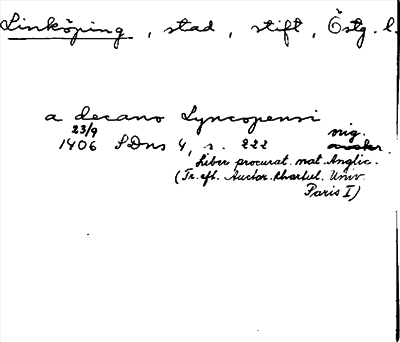 Linköping, stad, stift, Östg. l.
a decano Lyncopensi
23/9
1406 SDns 4, s. 222 nig.
Liber procurat. nat. Anglic.
(Tr. eft. Auctar. Chartul. Univ.
Paris I)